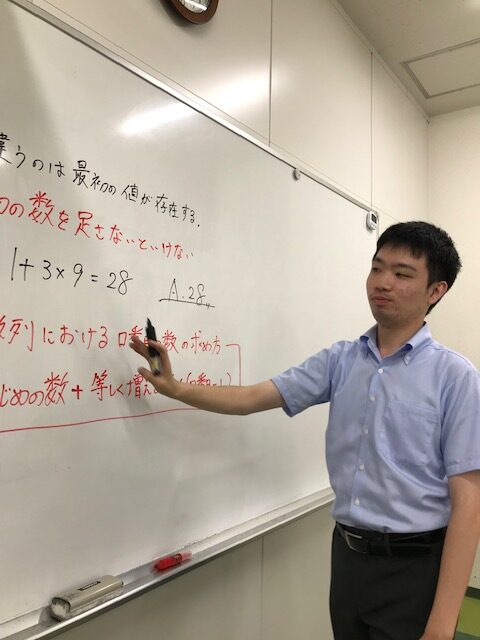 違うのは最初の値が存在する.
の数を足さないといけない
1+3×9=28 A.28
数列における□番 数の求め方
じめの数+等しく増え